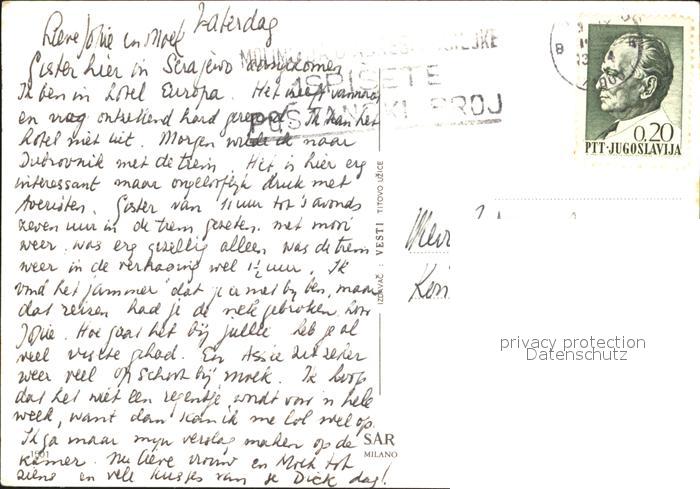 Zaterdag
Lieve Jopie en Moek
Gister hier in Serajewo aangekomen
Ik ben in hotel Europa. Het heeft vannacht
en vrag ontzettend hard geregend. Ik kan het
hotel niet uit. Morgen wilde ik naar
Dubrovnik met de trein. Het is hier erg
interessant maar ongelooflijk druk met
toeristen. Gister van 11 uur tot 's avonds
zeven uur in de trein gezeten, met mooi
weer. was erg gezellig alleen was de trein
weer in de vertraging wel 1½ uur. Ik
vind het jammer dat je er niet bij ben, maar
dat reizen had je de nek gebroken, hoor
Jopie. Hoe gaat het bij jullie heb je al
veel visite gehad. En Assie zit zeker
weer veel op schoot bij moek. Ik hoop
dat het niet een regentje wordt voor 'n hele
week, want dan kan ik me lol wel op.
Ik ga maar mijn verslag maken op de
kamer. Nu lieve vrouw en Moek tot
ziens en vele kusjes van je Dick dag!
ISPIŠITE
POŠTANSKI BROJ
0,20
PTT·JUGOSLAVIJA
IZDAVAČ: VESTI TITOVO UŽICE
SAR
MILANO
privacy protection
Datenschutz